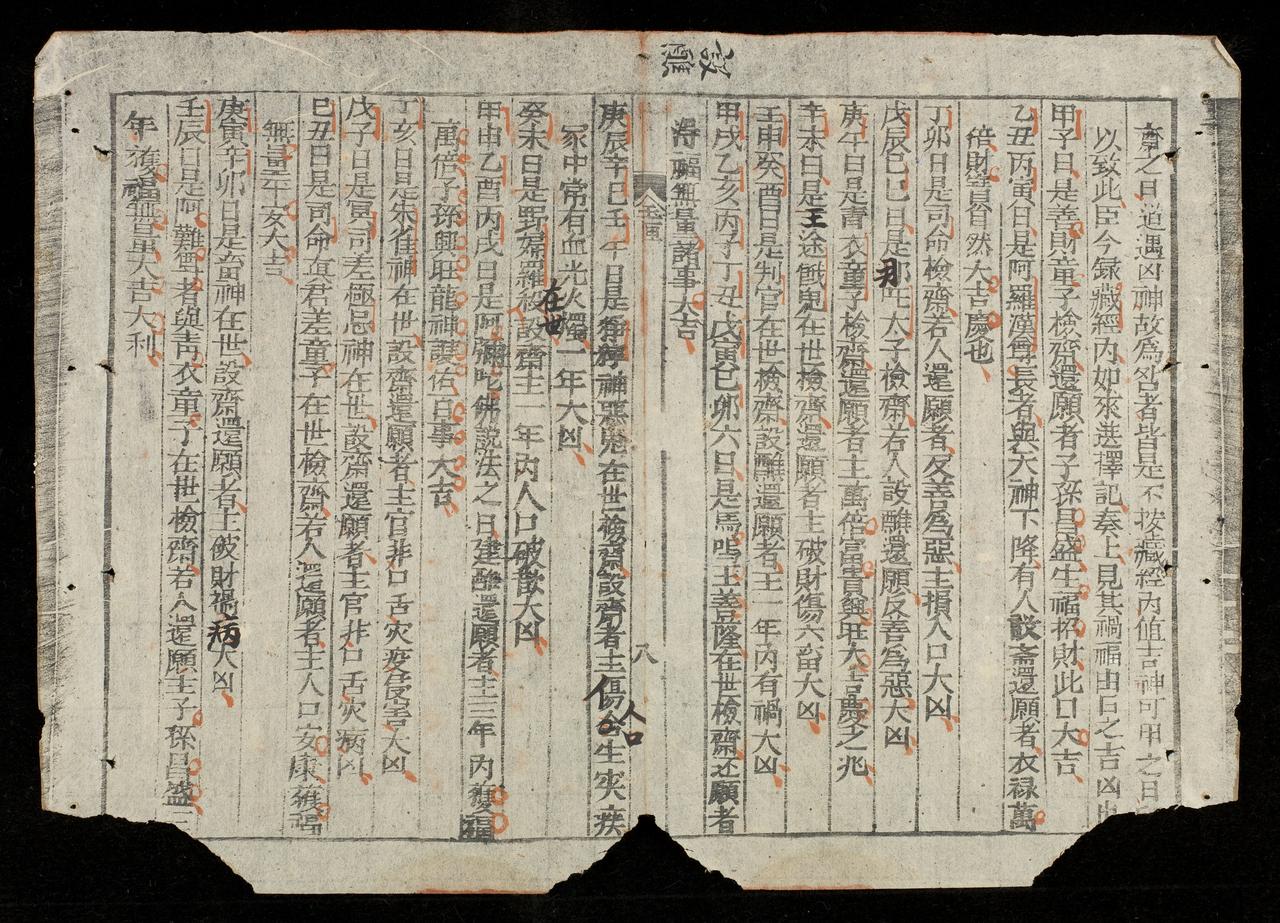 設醮
齋之日道遇凶神故為咎者皆是不按藏經內值吉神可用之日
以致此臣今録藏經內如來選擇記奏上見其禍福由日之吉凶也
甲子日是善財童子檢齋還願者子孫昌盛生福招財此日大吉
乙丑丙寅日是阿羅漢尊長者與六神下降有人設齋還願者衣禄萬
倍財寶自然大吉慶也
丁卯日是司命檢齋若人還願者反善爲惡主損人口大凶
戊辰己巳日是那吒太子檢齋若人設醮還願反善爲惡大凶
庚午日是青衣童子檢齋還願者主萬倍富貴興旺大吉慶之兆
辛未日是王途餓鬼在世檢齋還願者主破財傷六畜大凶
壬申癸酉日是判官在世檢齋設醮還願者主一年內有禍大凶
甲戌乙亥丙子丁丑戊寅己卯六日是馬鳴王菩薩在世檢齋還願者
得福無量諸事大吉
八
庚辰辛巳壬午日是神惡鬼在世檢齋設齋者主傷人口生灾疾
家中常有血光火燭一年大凶
癸未日是野婆羅在世設齋主一年內人口破散大凶
甲申乙酉丙戌日是阿彌陀佛說法之日建醮還願者主三年內獲福
萬倍子孫興旺龍神護佑百事大吉
丁亥日是朱雀神在世設齋還願者主官非口舌灾疫侵害大凶
戊子日是冥司差極忌神在世設齋還願者主官非口舌灾病凶
己丑日是司命真君差童子在世檢齋若人還願者主人口安康獲福
無量平安大吉
庚寅辛卯日是畜神在世設齋還願者主破財禍病大凶
壬辰日是阿難尊者與青衣童子在世檢齋若人還願主子孫昌盛三
年獲福無量大吉大利